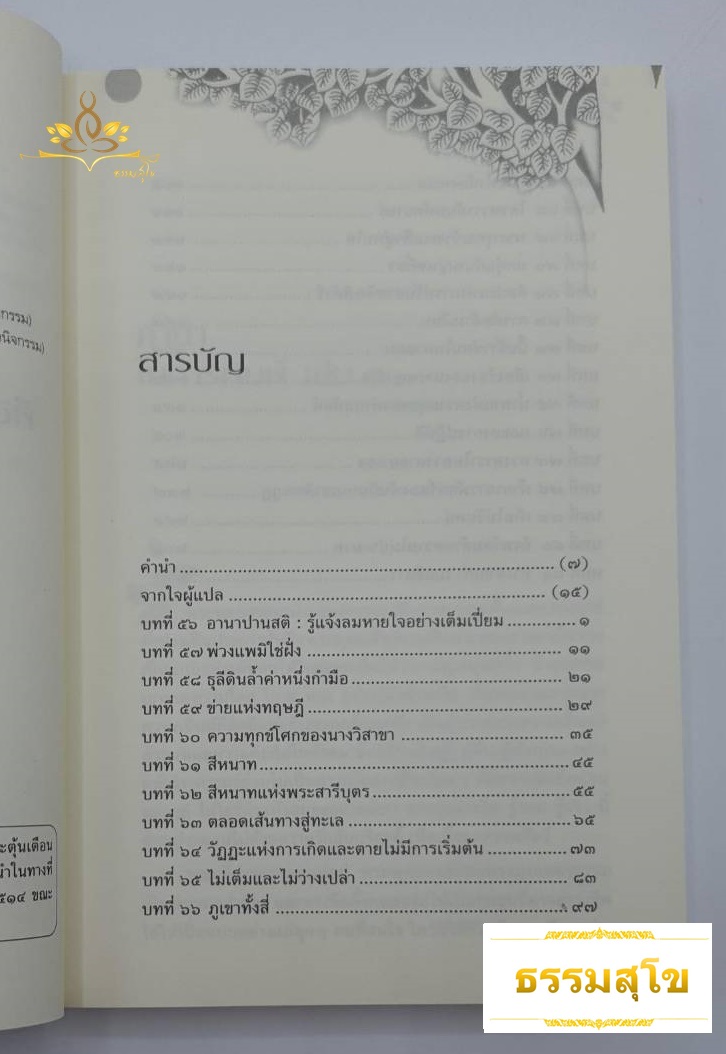 ธรรมสุโข
กรรม)
นิจกรรม)
สารบัญ
คำนำ ........ (๗)
จากใจผู้แปล ........ (๑๕)
บทที่ ๕๖ อานาปานสติ : รู้แจ้งลมหายใจอย่างเต็มเปี่ยม ........ ๑
บทที่ ๕๗ พ่วงแพมิใช่ฝั่ง ........ ๑๑
บทที่ ๕๘ ธุลีดินล้ำค่าหนึ่งกำมือ ........ ๒๑
บทที่ ๕๙ ข่ายแห่งทฤษฎี ........ ๒๙
บทที่ ๖๐ ความทุกข์โศกของนางวิสาขา ........ ๓๕
บทที่ ๖๑ สีหนาท ........ ๔๕
บทที่ ๖๒ สีหนาทแห่งพระสารีบุตร ........ ๕๕
บทที่ ๖๓ ตลอดเส้นทางสู่ทะเล ........ ๖๕
บทที่ ๖๔ วัฏฏะแห่งการเกิดและตายไม่มีการเริ่มต้น ........ ๗๓
บทที่ ๖๕ ไม่เต็มและไม่ว่างเปล่า ........ ๘๓
บทที่ ๖๖ ภูเขาทั้งสี่ ........ ๙๗
ะตุ้นเตือน
นำในทางที่
๕๑๔ ขณะ
ธรรมสุโข